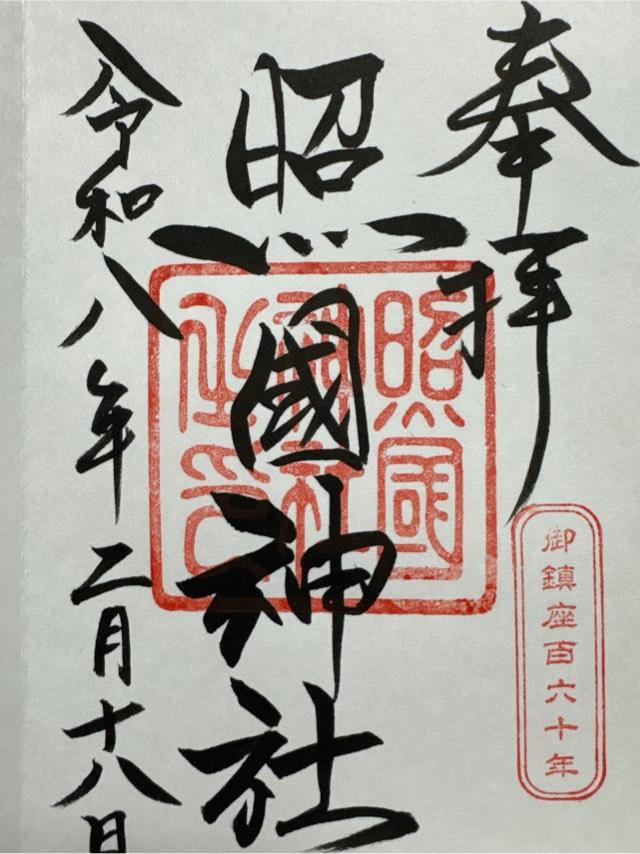 奉拝
照國神社
令和八年二月十八日
照國
神社
之印
御鎮座百六十年